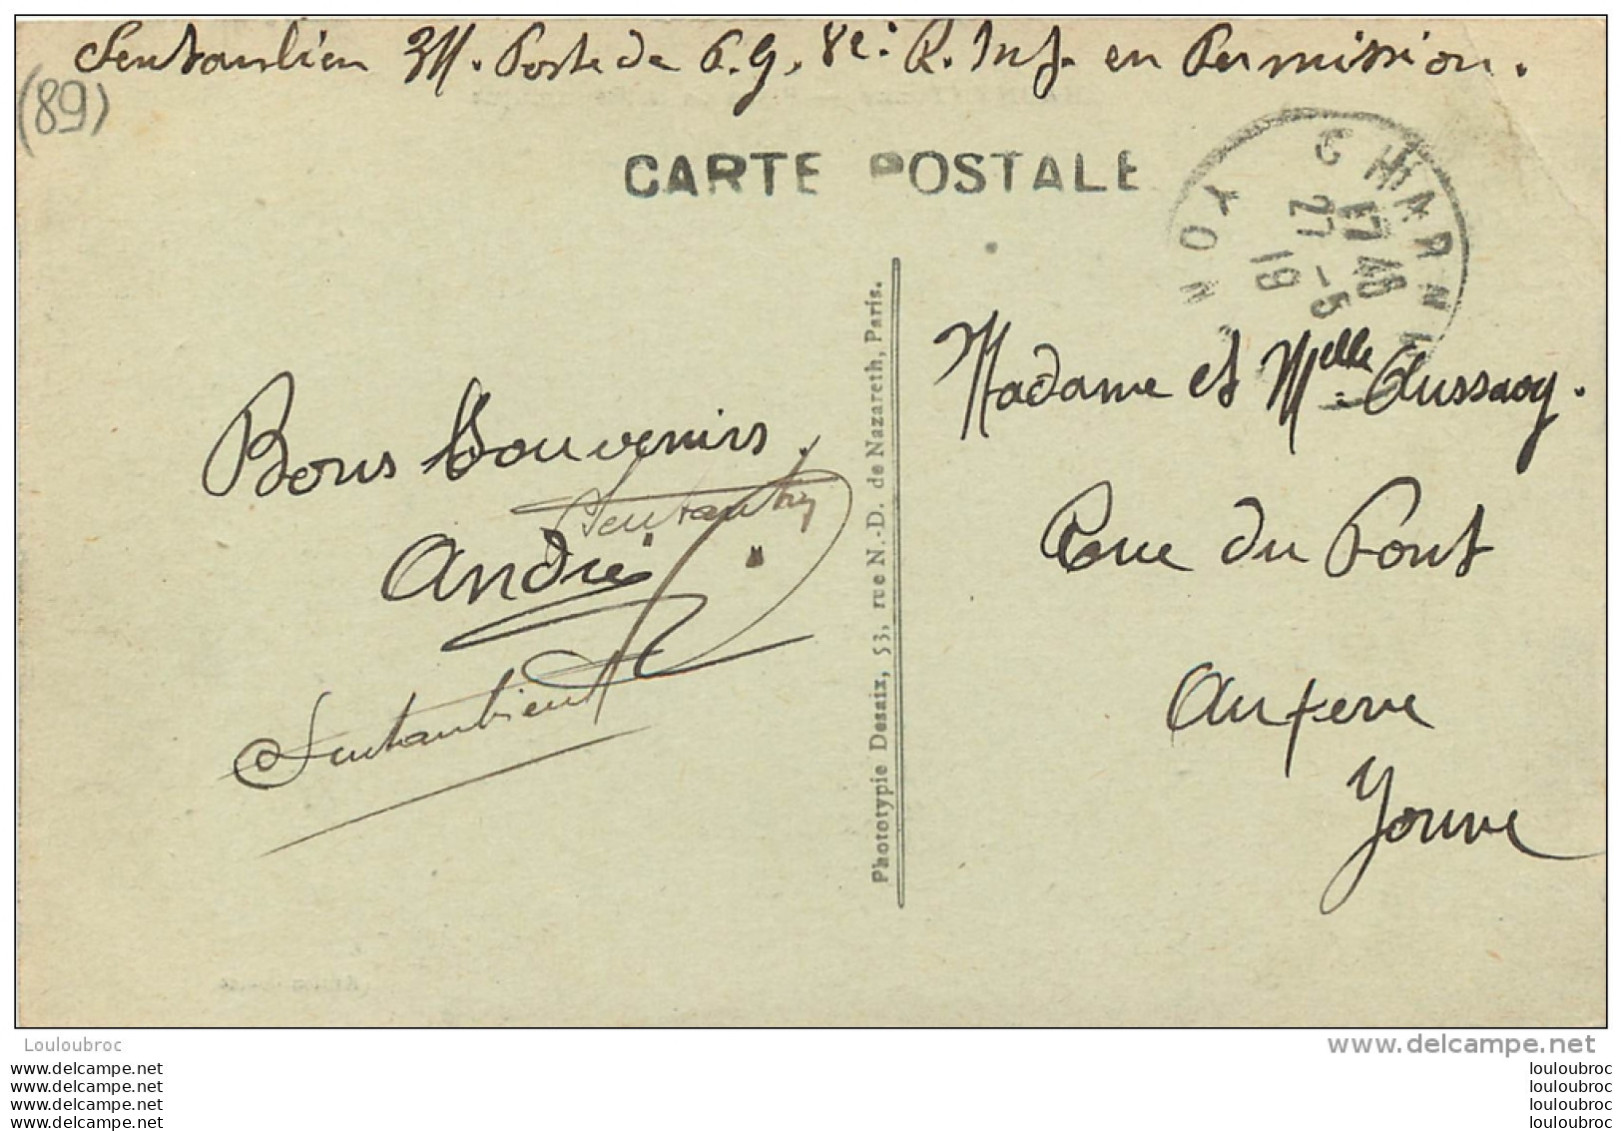 Sentaurlien M. Poste de P.G. 8e: R. Inf. en Permission.
(89)
CARTE POSTALE
CHARNY
17 48
27 -5
19
YONNE
Madame et Melle Aussaoy.
Rue du Pont
Auxerre
Yonne
Bons Souvenirs.
André
Phototypie Desaix, 53, rue N.-D. de Nazareth, Paris.
Louloubroc
www.delcampe.net
www.delcampe.net
www.delcampe.net
www.delcampe.net
www.delcampe.net
louloubroc
louloubroc
louloubroc
louloubroc